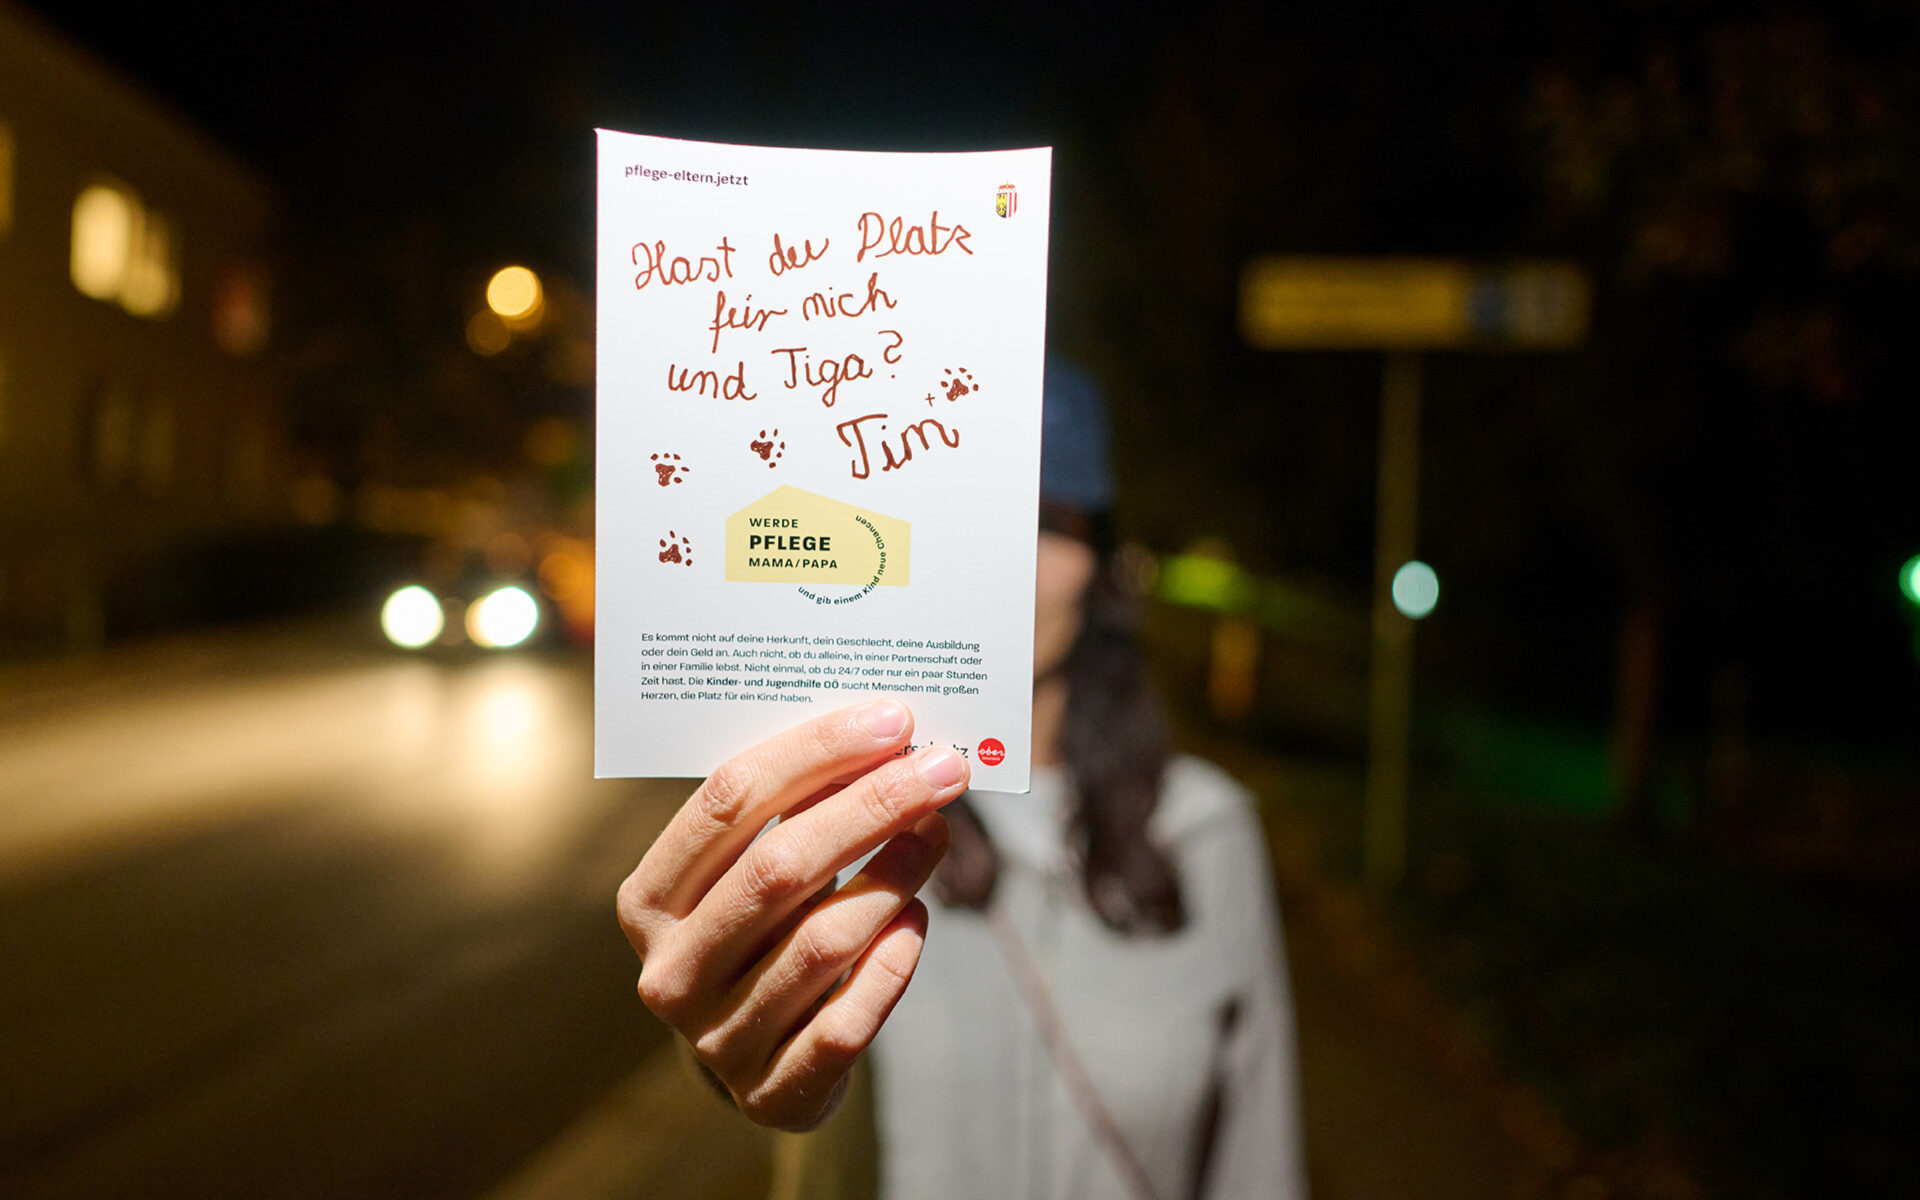 pflege-eltern.jetzt
Hast du Platz
für mich
und Tiga?
+
Tim
WERDE
PFLEGE
MAMA/PAPA
und gib einem Kind neue Chancen
Es kommt nicht auf deine Herkunft, dein Geschlecht, deine Ausbildung
oder dein Geld an. Auch nicht, ob du alleine, in einer Partnerschaft oder
in einer Familie lebst. Nicht einmal, ob du 24/7 oder nur ein paar Stunden
Zeit hast. Die Kinder- und Jugendhilfe OÖ sucht Menschen mit großen
Herzen, die Platz für ein Kind haben.
ober